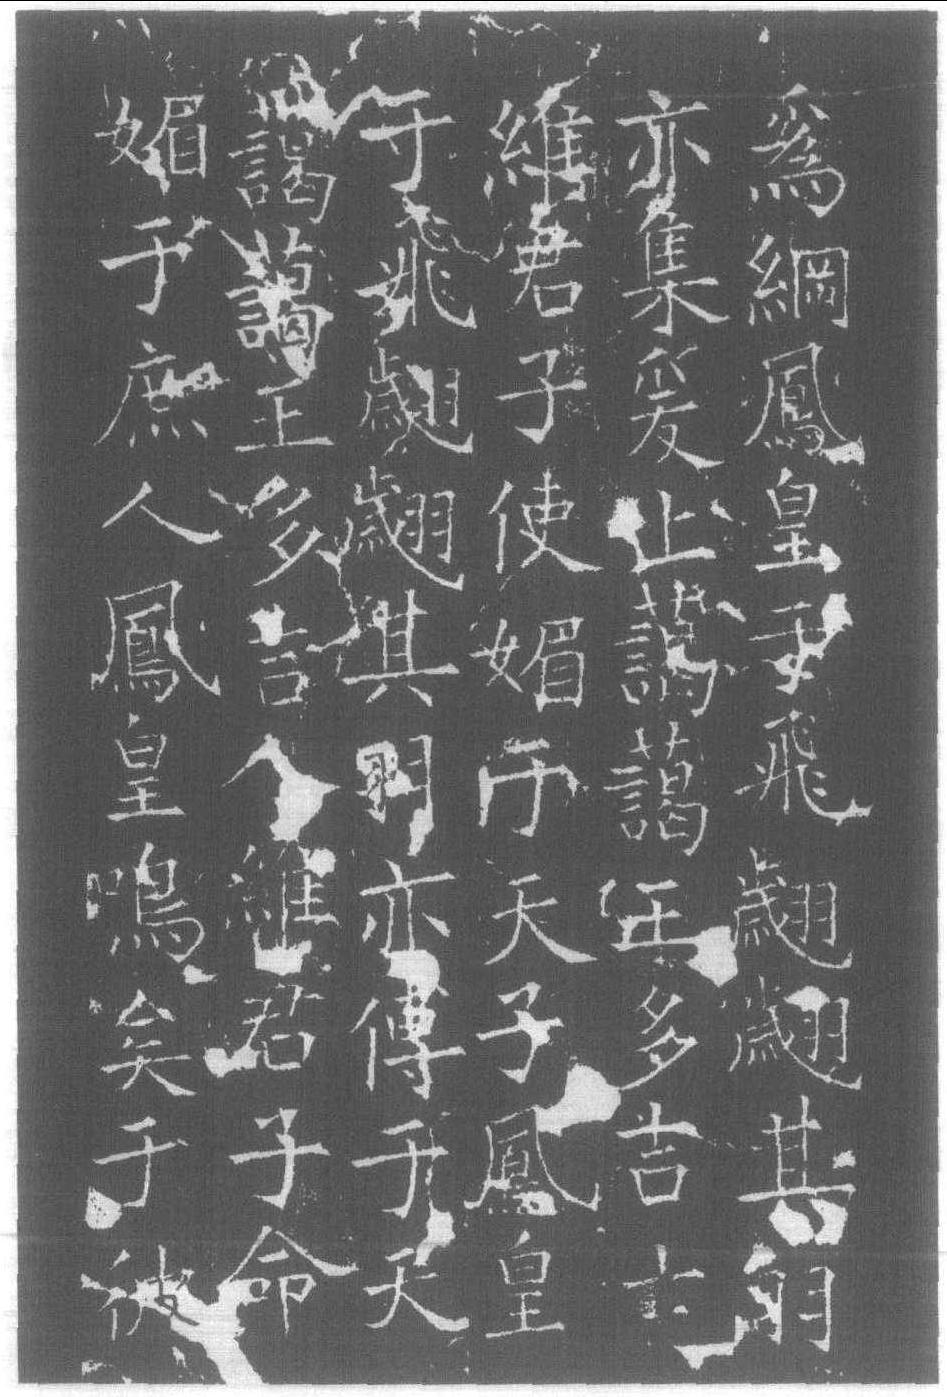 爲綱鳳皇于飛翽翽其羽
亦集爰止藹藹王多吉士
維君子使媚于天子鳳皇
于飛翽翽其羽亦傅于天
藹藹王多吉人維君子命
媚于庶人鳳皇鳴矣于彼